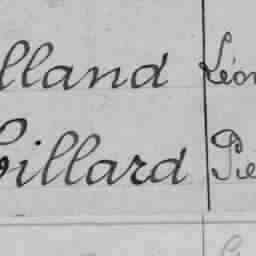 lland Léon
illard Pie